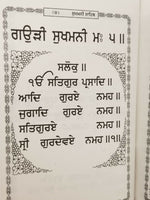 ਸੁਖਮਨੀ ਸਾਹਿਬ
ਗਉੜੀ ਸੁਖਮਨੀ ਮਃ ੫॥
ਸਲੋਕੁ॥
ੴ ਸਤਿਗੁਰ ਪ੍ਰਸਾਦਿ॥
ਆਦਿ ਗੁਰਏ ਨਮਹ॥
ਜੁਗਾਦਿ ਗੁਰਏ ਨਮਹ॥
ਸਤਿਗੁਰਏ ਨਮਹ॥
ਸ੍ਰੀ ਗੁਰਦੇਵਏ ਨਮਹ॥੧॥